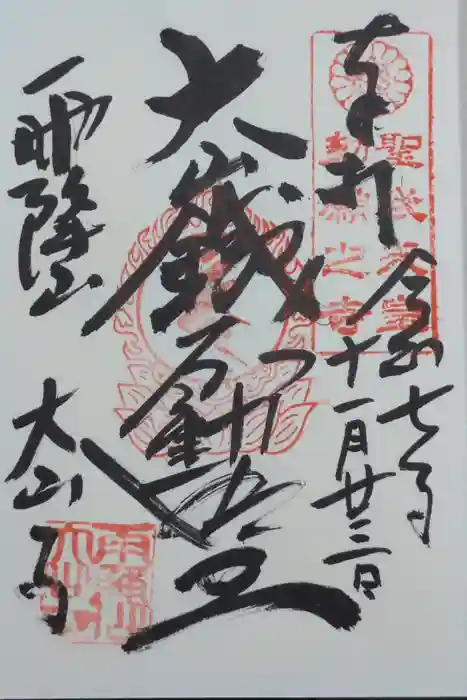 奉拝
令和七年
十一月廿三日
聖武天皇
勅願之寺
大山鐵不動尊
雨降山
大山寺
雨降山
大山寺